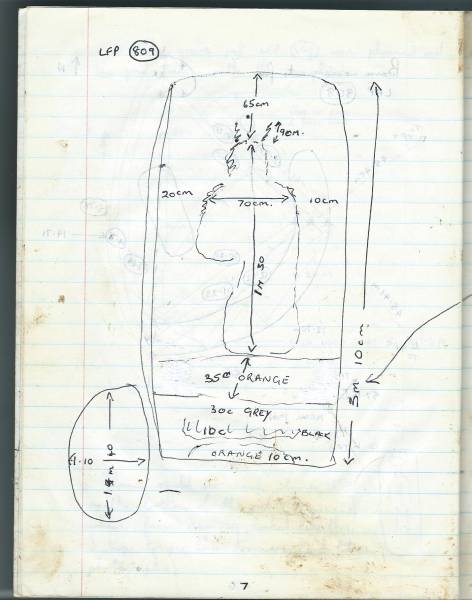 LFP 809
65cm
9cm.
20cm
70cm.
10cm
1m 30
3m 10cm
35cm ORANGE
30c GREY
10c BLACK
ORANGE 10cm.
1.10
7